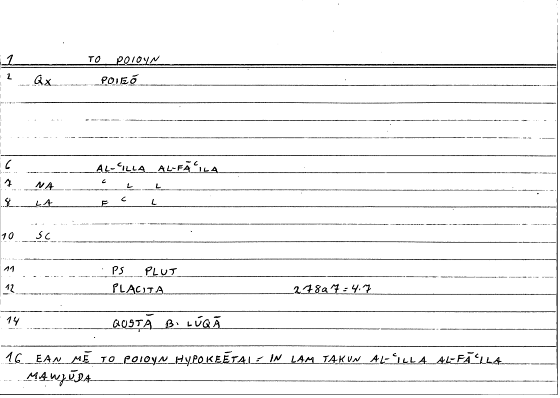 1 TO POIOYN
2 Qx POIEŌ
6 AL-ᶜILLA AL-FĀᶜILA
7 NA ᶜ L L
8 LA F ᶜ L
10 SC
11 PS PLUT
12 PLACITA 278a7=4.7
14 QOSṬĀ B. LŪQĀ
16 EAN MĒ TO POIOYN HYPOKEĒTAI = IN LAM TAKUN AL-ᶜILLA AL-FĀᶜILA
MAWJŪDA